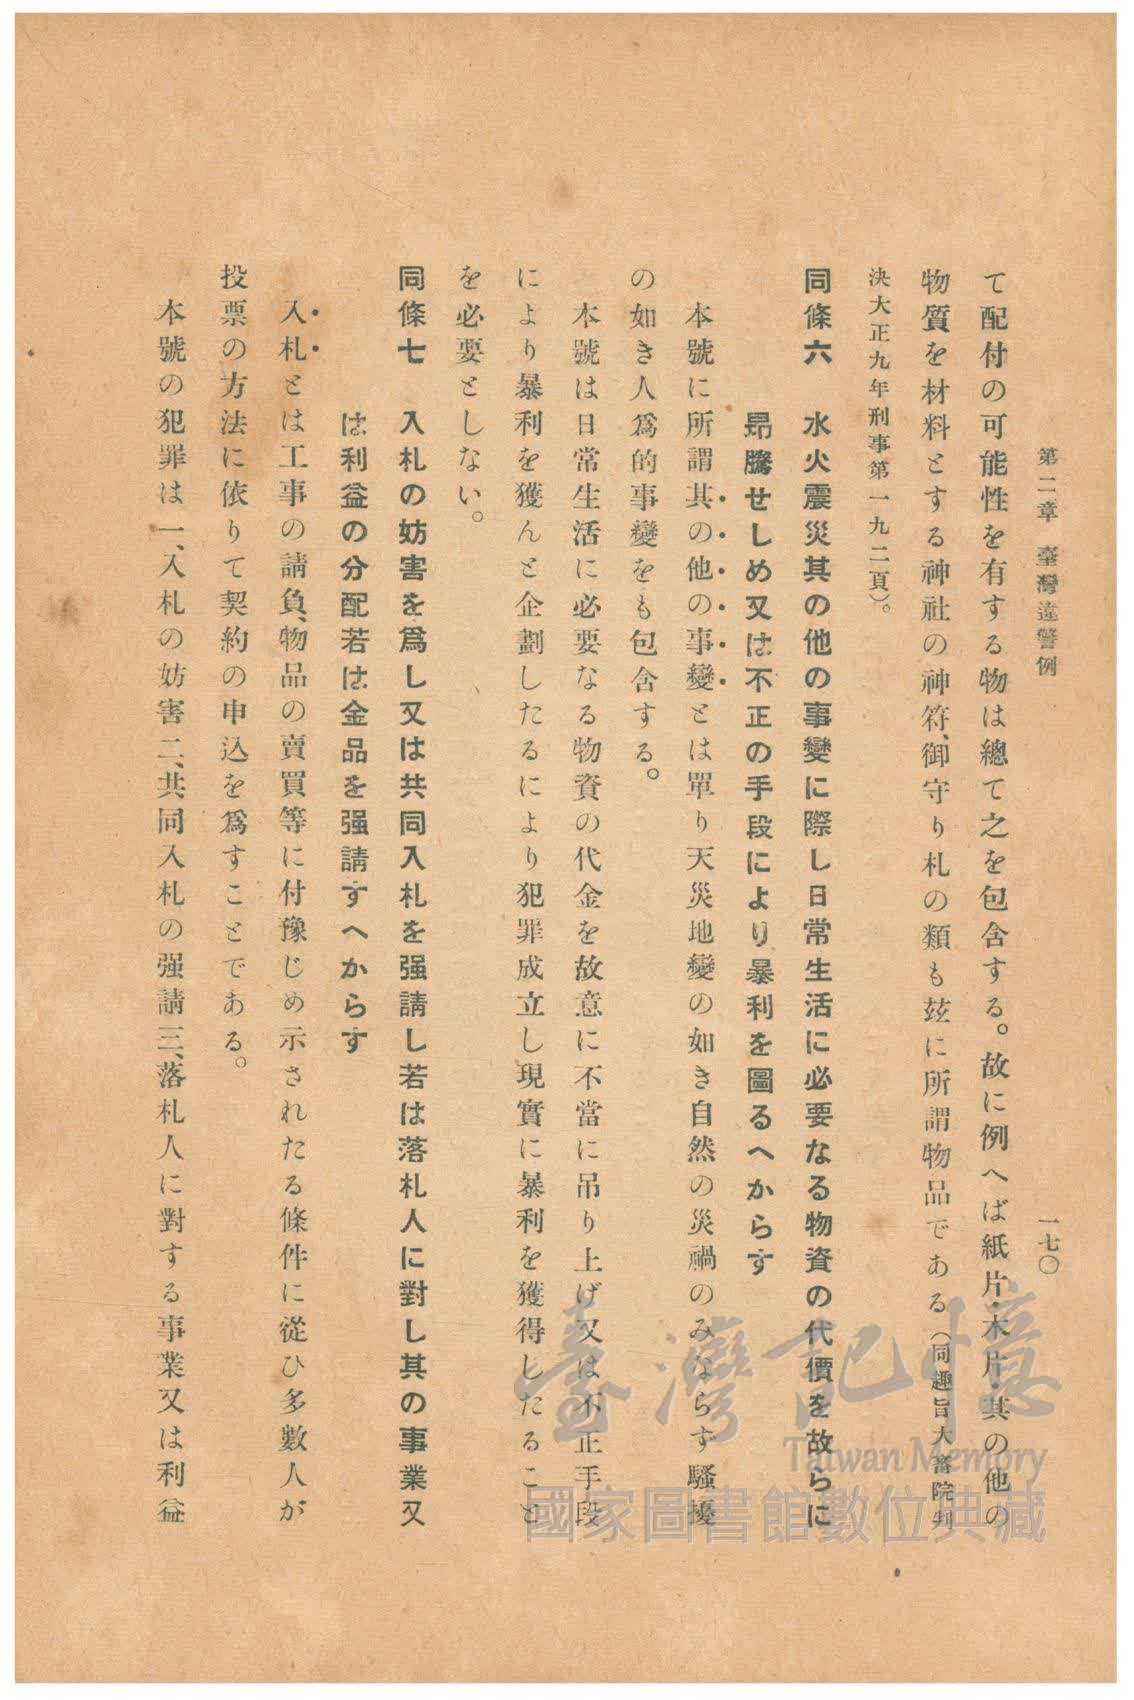 第二章　臺灣違警例
一七〇
て配付の可能性を有する物は總て之を包含する。故に例へば紙片・木片・其の他の
物質を材料とする神社の神符、御守り札の類も玆に所謂物品である（同趣旨大審院判
決大正九年刑事第一九二頁）。
同條六　水火震災其の他の事變に際し日常生活に必要なる物資の代價を故らに
昻騰せしめ又は不正の手段により暴利を圖るへからす
本號に所謂其の他の事變とは單り天災地變の如き自然の災禍のみならず騷擾
の如き人爲的事變をも包含する。
本號は日常生活に必要なる物資の代金を故意に不當に吊り上げ又は不正手段
により暴利を獲んと企劃したるにより犯罪成立し現實に暴利を獲得したること
を必要としない。
同條七　入札の妨害を爲し又は共同入札を强請し若は落札人に對し其の事業又
は利益の分配若は金品を强請すへからす
入札とは工事の請負、物品の賣買等に付豫じめ示されたる條件に從ひ多數人が
投票の方法に依りて契約の申込を爲すことである。
本號の犯罪は一、入札の妨害二、共同入札の强請三、落札人に對する事業又は利益
臺灣記憶
Taiwan Memory
國家圖書館數位典藏